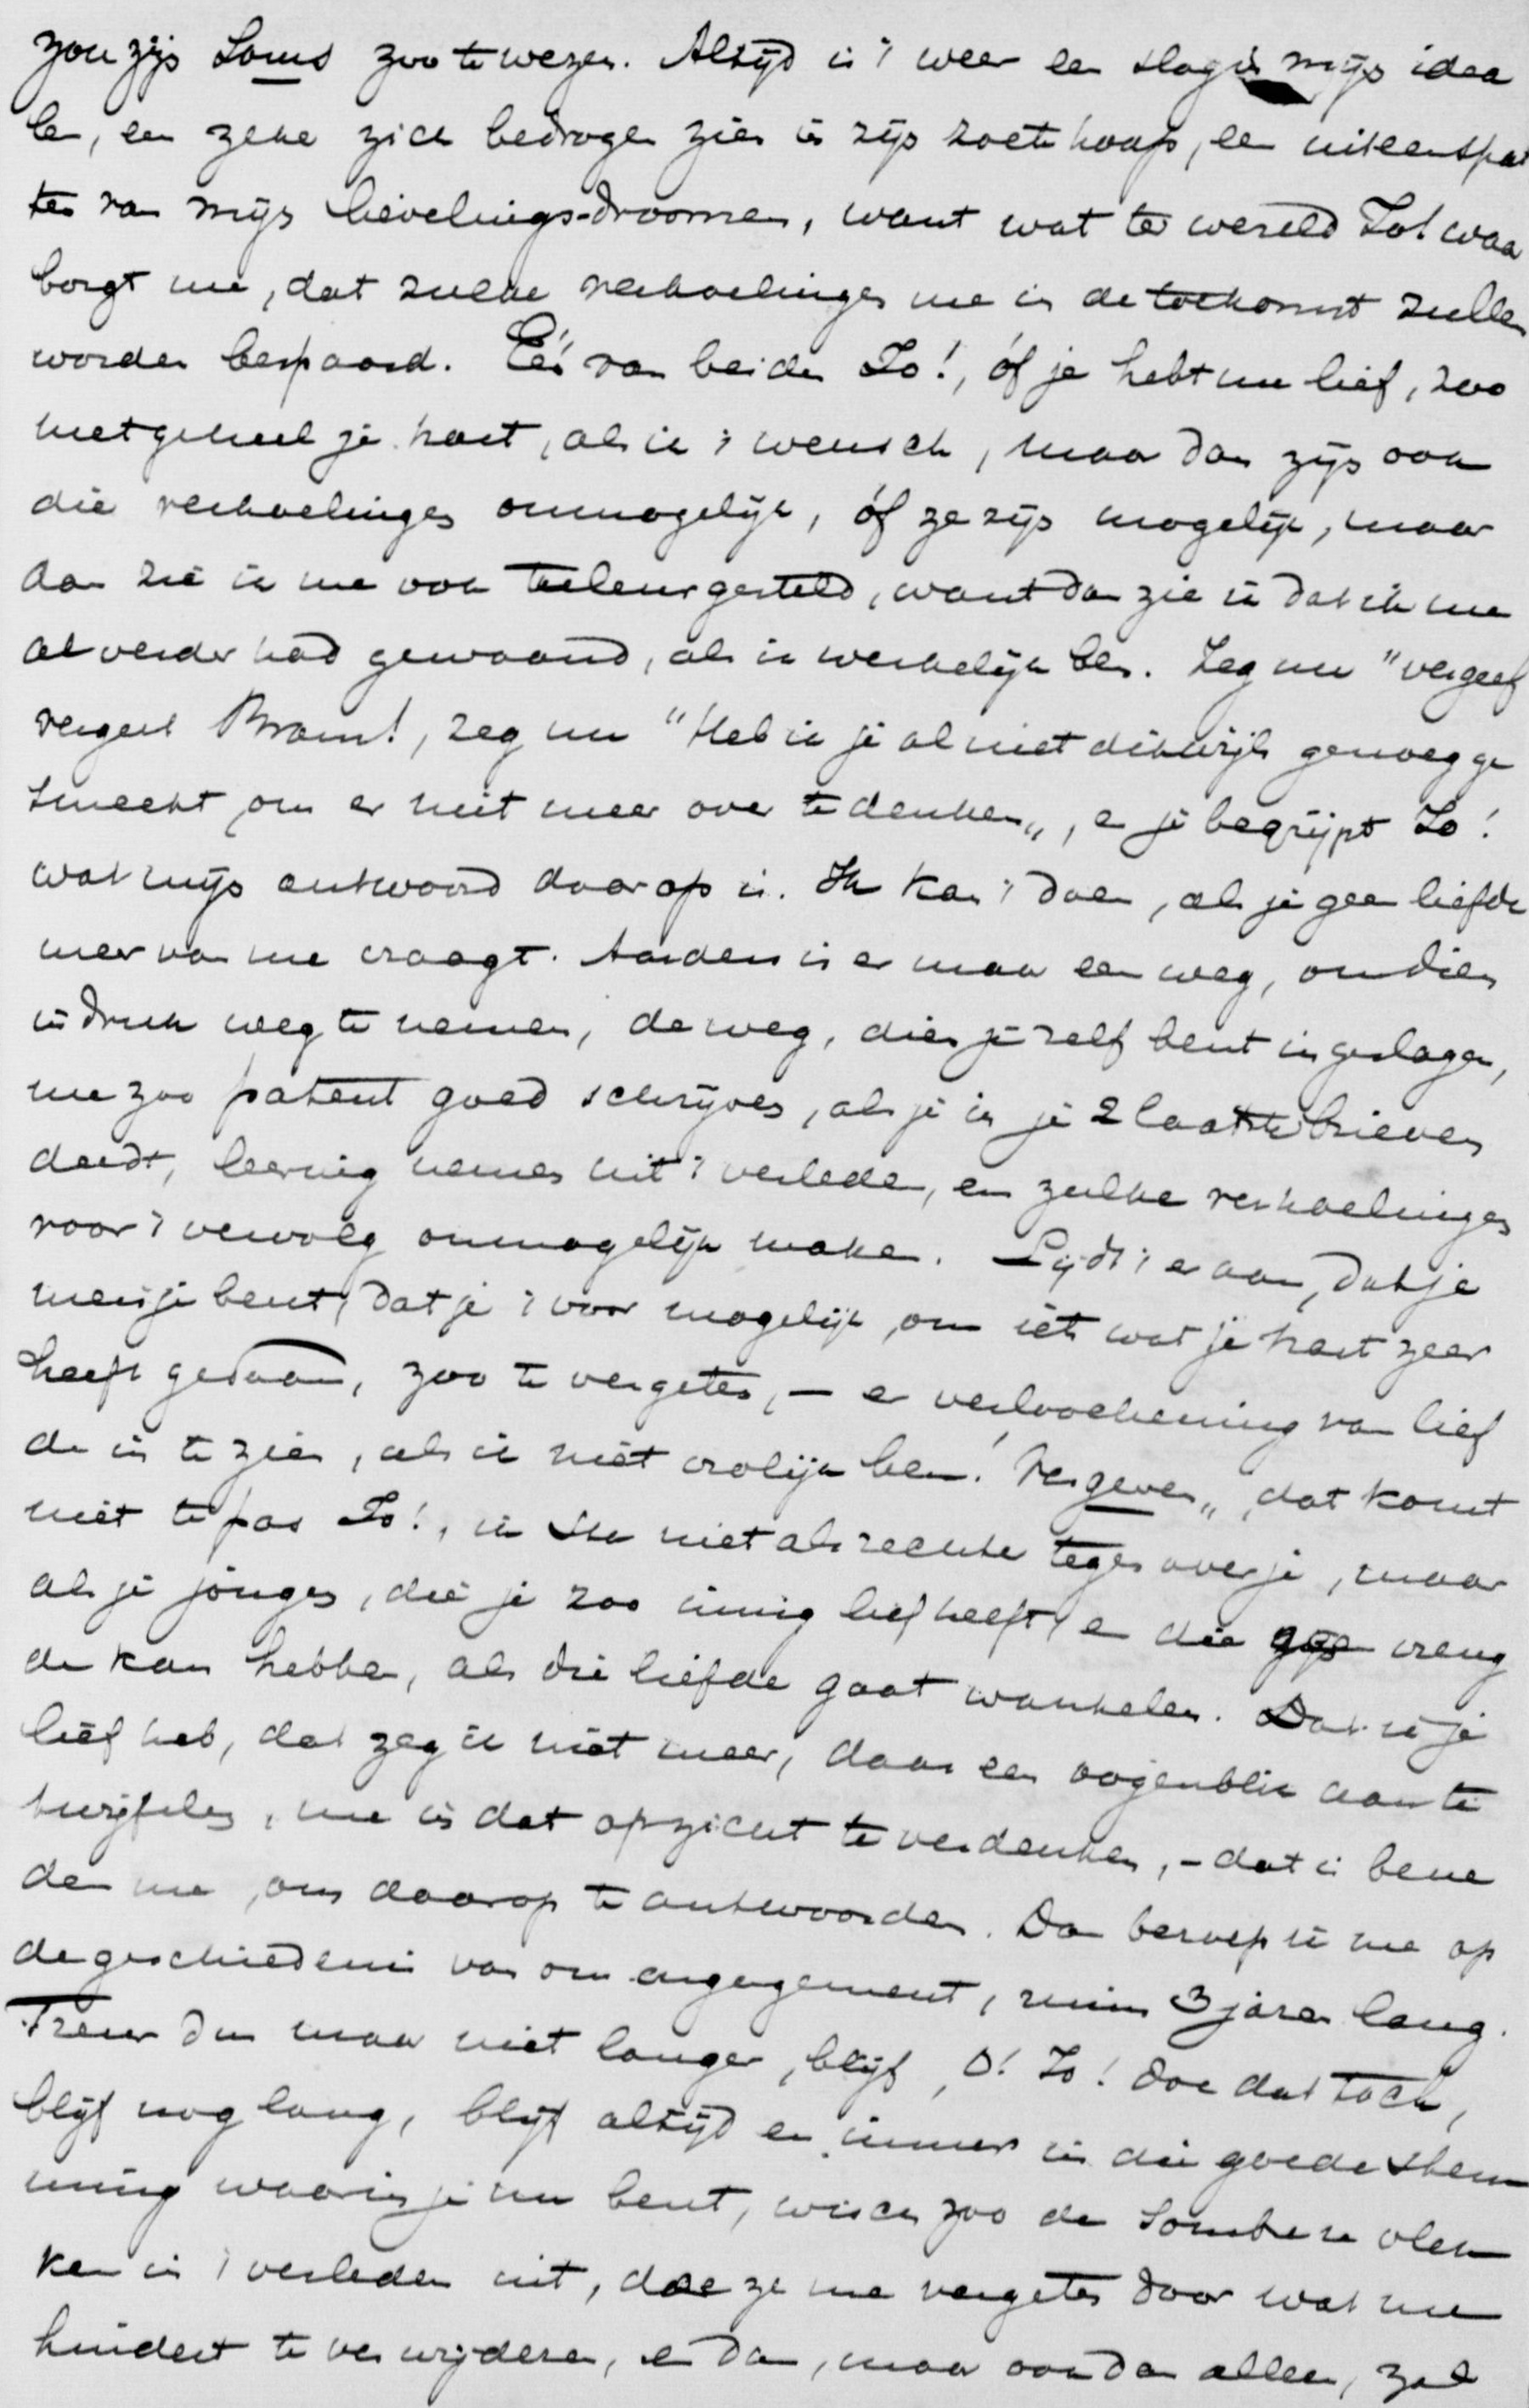 zou zijn soms zoo te wezen. Altijd is 't weer een slag in mijn idea
len, een zeker zich bedrogen zien in zijn zoete hoop, een uiteenspat
ten van mijn lievelings-droomen, want wat ter wereld Jo! waar
borgt me, dat zulke verkoelingen me in de toekomst zullen
worden bespaard. Één van beiden Jo!, óf je hebt me lief, zoo
met geheel je hart, als ik 't wensch, maar dan zijn ook
die verkoelingen onmogelijk, óf ze zijn mogelijk, maar
dan zie ik me ook teleurgesteld, want dan zie ik dat ik me
al verder had gewaand, als ik werkelijk ben. Zeg nu "vergeef
vergeet Bram!, zeg nu "Heb ik je al niet dikwijls genoeg ge
smeekt, om er niet meer over te denken", en je begrijpt Jo!
wat mijn antwoord daarop is. Ik kan 't doen, als je geen liefde
meer van me vraagt. Anders is er maar een weg, om dien
indruk weg te nemen, de weg, dien je zelf bent ingeslagen,
me zoo patent goed schrijven, als je in je 2 laatste brieven
deedt, leering nemen uit 't verleden, en zulke verkoelingen
voor 't vervolg onmogelijk maken. Ligt 't er aan, dat je
meisje bent, dat je 't voor mogelijk, om iets wat je hart zeer
heeft gedaan, zoo te vergeten, – er verloochening van lief
de in te zien, als ik niet vrolijk ben! "Vergeven", dat komt
niet te pas Jo!, ik sta niet als rechter tegenover je, maar
als je jongen, die je zoo innig lief heeft, en die geen vreug
de kan hebben, als die liefde gaat wankelen. Dat ik je
lief heb, dat zeg ik niet meer, daar een oogenblik aan te
twijfelen, me in dat opzicht te verdenken, – dat is bene
den me, om daarop te antwoorden. Dan beroep ik me op
de geschiedenis van ons engagement, ruim 3 jaren lang.
Treur dus maar niet langer, blijf, O! Jo! doe dat toch,
blijf nog lang, blijf altijd en immer in die goede stem
ming waarin je nu bent, wisch zoo de sombere vlek
ken in 't verleden uit, doe ze me vergeten door wat me
hindert te verwijderen, en dan, maar ook dan alleen, zal